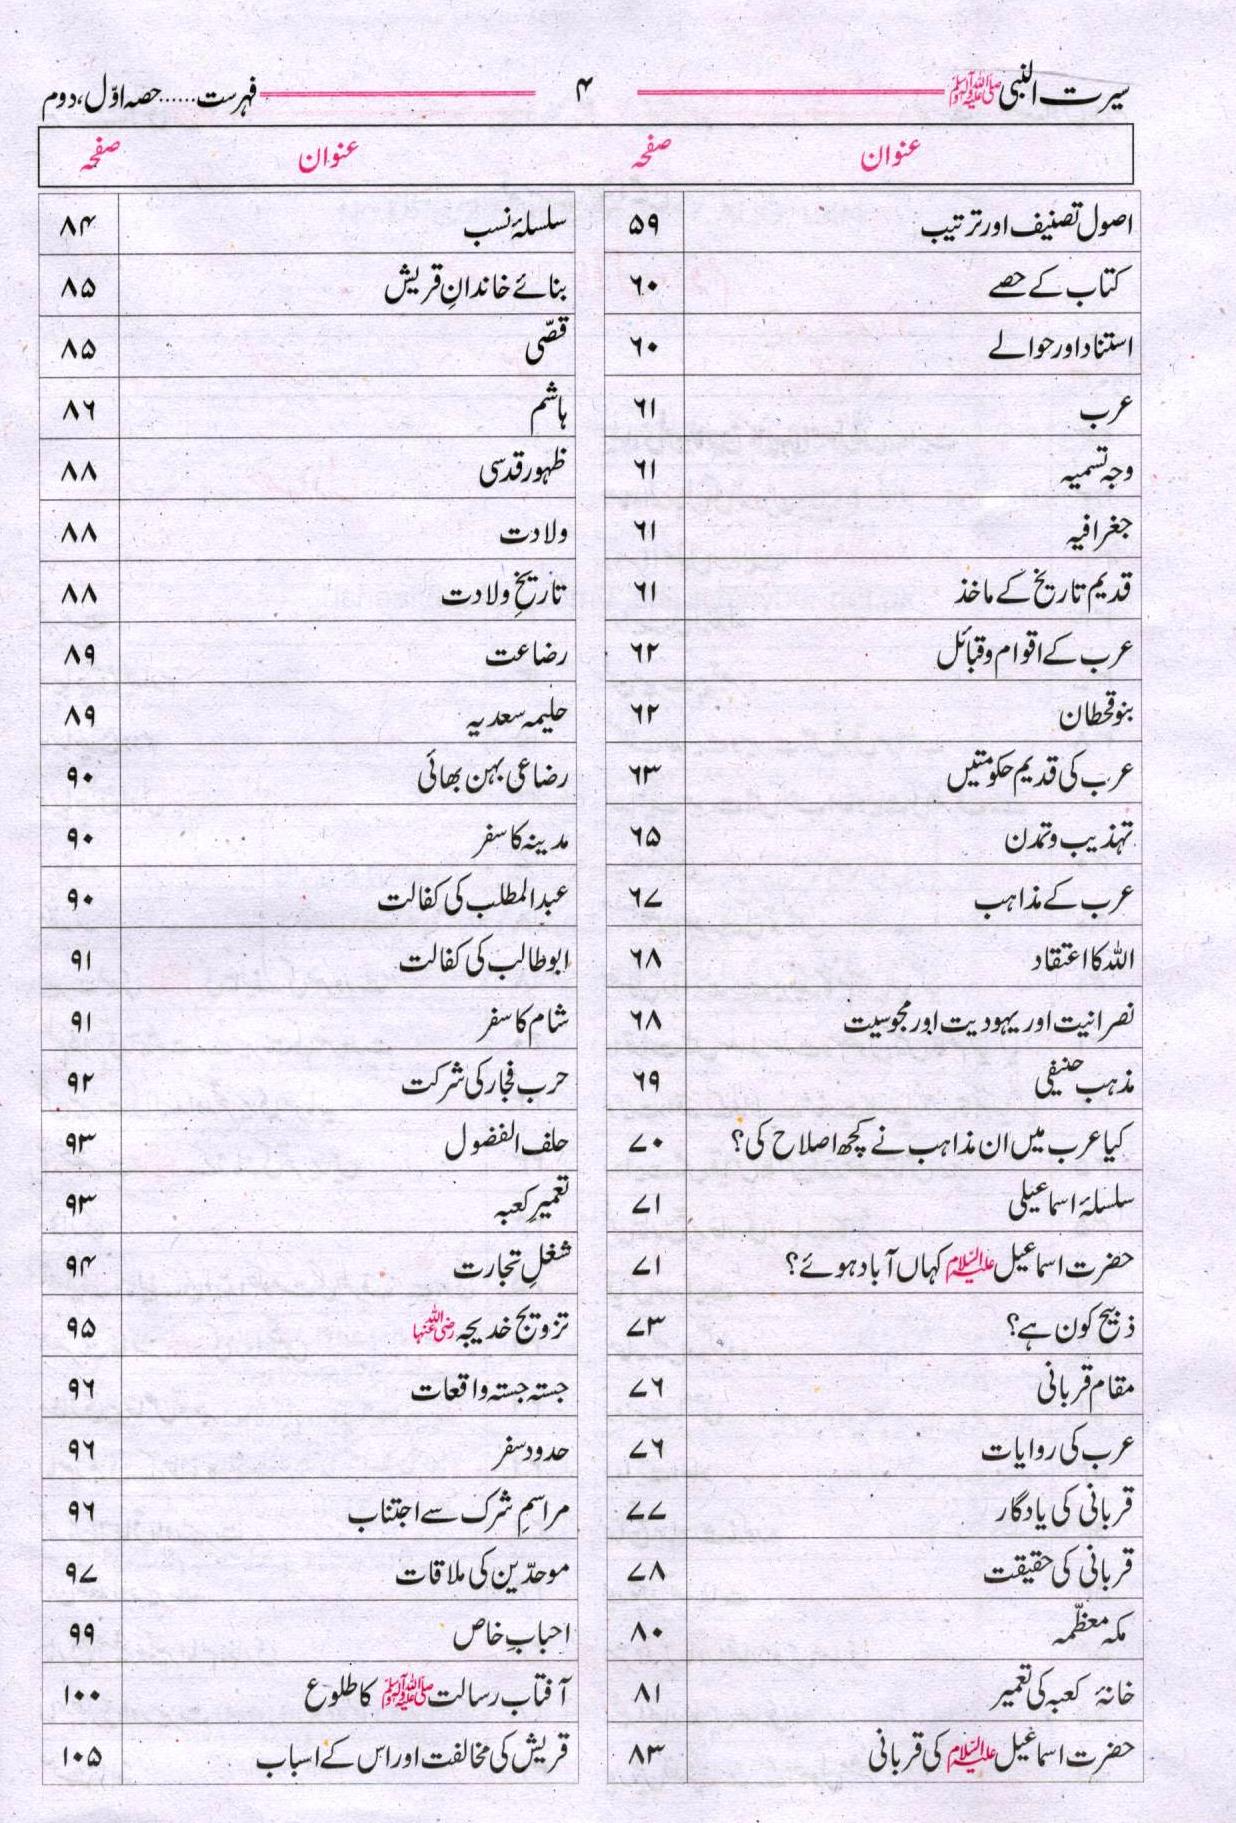 سیرت النبی ﷺ ۴ فہرست......حصہ اوّل، دوم
عنوان صفحہ عنوان صفحہ
اصول تصنیف اور ترتیب ۵۹ سلسلۂ نسب ۸۴
کتاب کے حصے ۶۰ بنائے خاندانِ قریش ۸۵
استناد اور حوالے ۶۰ قصّی ۸۵
عرب ۶۱ ہاشم ۸۶
وجہ تسمیہ ۶۱ ظہور قدسی ۸۸
جغرافیہ ۶۱ ولادت ۸۸
قدیم تاریخ کے ماخذ ۶۱ تاریخِ ولادت ۸۸
عرب کے اقوام و قبائل ۶۲ رضاعت ۸۹
بنو قحطان ۶۲ حلیمہ سعدیہ ۸۹
عرب کی قدیم حکومتیں ۶۳ رضاعی بہن بھائی ۹۰
تہذیب و تمدن ۶۵ مدینہ کا سفر ۹۰
عرب کے مذاہب ۶۷ عبدالمطلب کی کفالت ۹۰
اللہ کا اعتقاد ۶۸ ابوطالب کی کفالت ۹۱
نصرانیت اور یہودیت اور مجوسیت ۶۸ شام کا سفر ۹۱
مذہب حنیفی ۶۹ حرب فجار کی شرکت ۹۲
کیا عرب میں ان مذاہب نے کچھ اصلاح کی؟ ۷۰ حلف الفضول ۹۳
سلسلۂ اسماعیلی ۷۱ تعمیرِ کعبہ ۹۳
حضرت اسماعیل علیہ السلام کہاں آباد ہوئے؟ ۷۱ شغلِ تجارت ۹۴
ذبیح کون ہے؟ ۷۳ تزویج خدیجہ رضی اللہ عنہا ۹۵
مقام قربانی ۷۶ جستہ جستہ واقعات ۹۶
عرب کی روایات ۷۶ حدود سفر ۹۶
قربانی کی یادگار ۷۷ مراسمِ شرک سے اجتناب ۹۶
قربانی کی حقیقت ۷۸ موحدّین کی ملاقات ۹۷
مکہ معظّمہ ۸۰ احبابِ خاص ۹۹
خانۂ کعبہ کی تعمیر ۸۱ آفتاب رسالت ﷺ کا طلوع ۱۰۰
حضرت اسماعیل علیہ السلام کی قربانی ۸۳ قریش کی مخالفت اور اس کے اسباب ۱۰۵